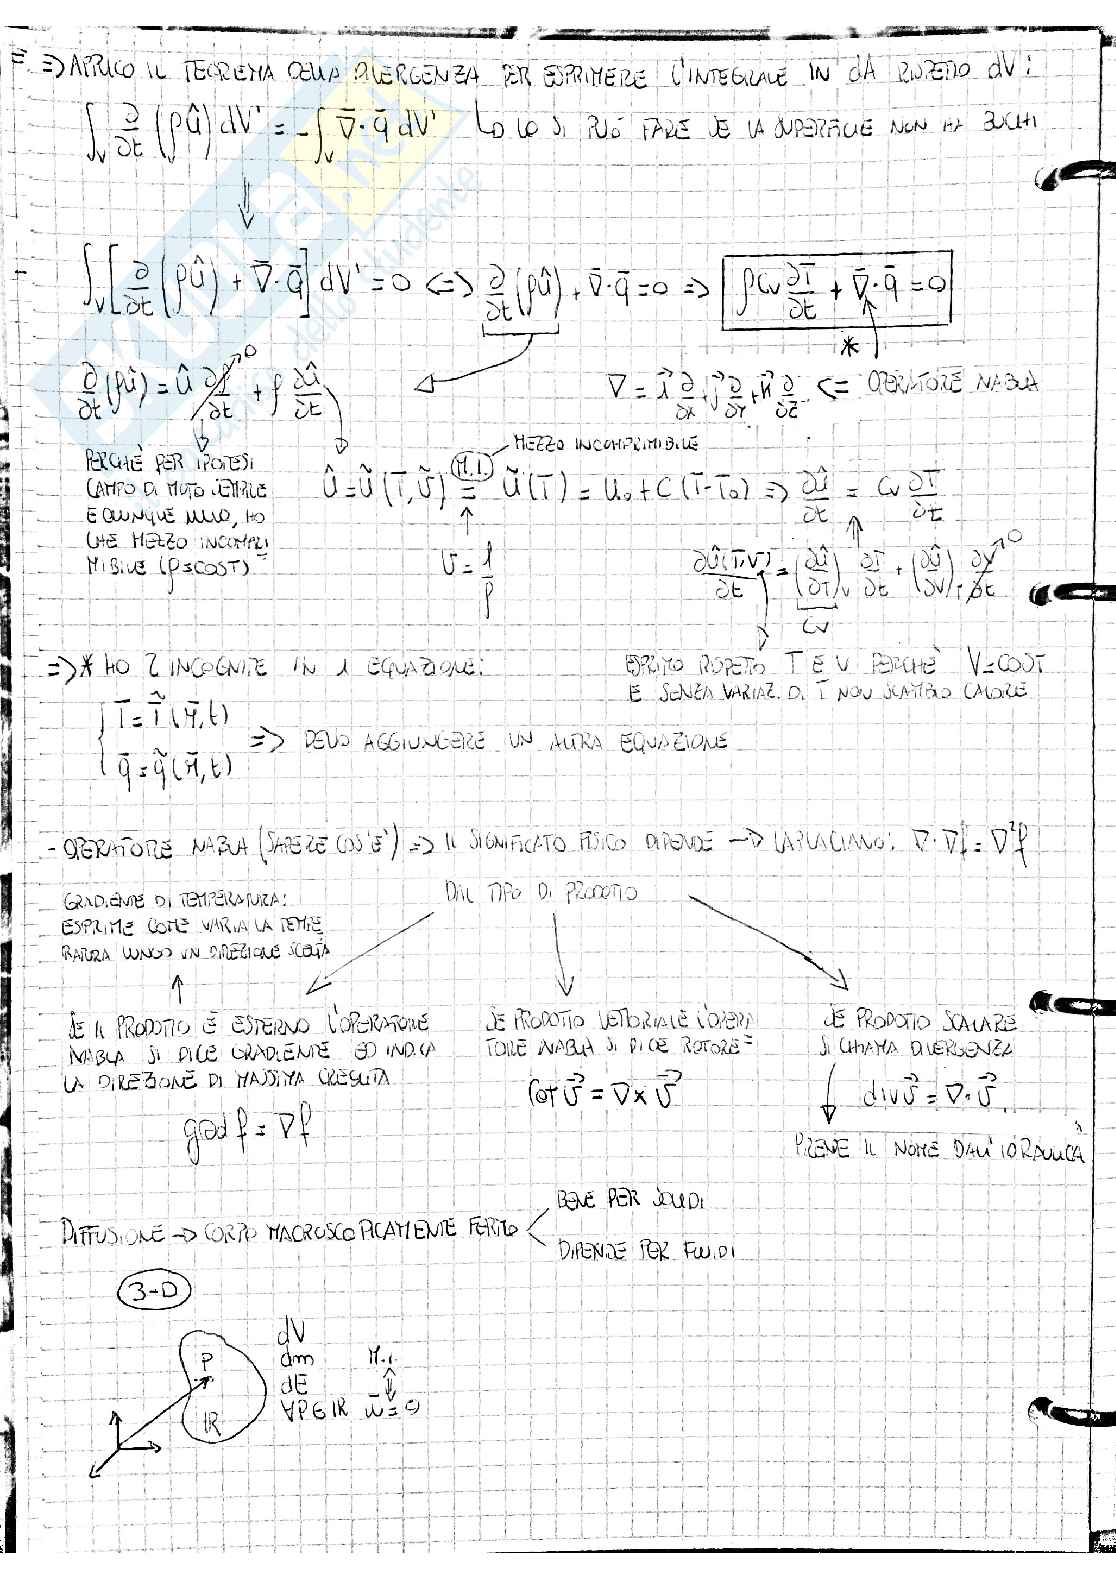 ⇒ APPLICO IL TEOREMA DELLA DIVERGENZA PER ESPRIMERE L'INTEGRALE IN dA RISPETTO dV:
∫_V ∂/∂t (ρû) dV' = -∫_V ∇̄·q̄ dV' ↳ LO SI PUÒ FARE SE LA SUPERFICIE NON HA BUCHI
∫_V [∂/∂t (ρû) + ∇̄·q̄] dV' = 0 ⇔ ∂/∂t (ρû) + ∇̄·q̄ = 0 ⇒ ρ Cv ∂T/∂t + ∇̄·q̄ = 0
*
∂/∂t (ρû) = û ∂ρ/∂t → 0 + ρ ∂û/∂t
∇ = i ∂/∂x + j ∂/∂y + k ∂/∂z ⇐ OPERATORE NABLA
PERCHÈ PER IPOTESI
CAMPO DI MOTO SEMPRE
E OVUNQUE NULLO, HO
CHE MEZZO INCOMPRI
MIBILE (ρ=COST)
MEZZO INCOMPRIMIBILE
û = ũ(T, ṽ) = (M.I.) ũ(T) = u₀ + C(T-T₀) ⇒ ∂û/∂t = Cv ∂T/∂t
v = 1/ρ
∂û(T,v)/∂t = (∂û/∂T)v ∂T/∂t + (∂û/∂v)T ∂v/∂t → 0
Cv
ESPRIMO RISPETTO T E V PERCHÈ V=COST
E SENZA VARIAZ. DI T NON SCAMBIO CALORE
⇒ * HO 2 INCOGNITE IN 1 EQUAZIONE:
T = T̃(r̄, t)
q̄ = q̃(r̄, t)
⇒ DEVO AGGIUNGERE UN ALTRA EQUAZIONE
- OPERATORE NABLA (SAPERE COS'È) ⇒ IL SIGNIFICATO FISICO DIPENDE → LAPLACIANO: ∇·∇f = ∇²f
DAL TIPO DI PRODOTTO
GRADIENTE DI TEMPERATURA:
ESPRIME COME VARIA LA TEMPE
RATURA LUNGO UN DIREZIONE SCELTA
SE IL PRODOTTO È ESTERNO L'OPERATORE
NABLA SI DICE GRADIENTE ED INDICA
LA DIREZIONE DI MASSIMA CRESCITA
grad f = ∇f
SE PRODOTTO VETTORIALE L'OPERA
TORE NABLA SI DICE ROTORE
rot v = ∇×v
SE PRODOTTO SCALARE
SI CHIAMA DIVERGENZA
div v = ∇·v
PRENDE IL NOME DALL'IDRAULICA
DIFFUSIONE → CORPO MACROSCOPICAMENTE FERMO
BENE PER SOLIDI
DIPENDE PER FLUIDI
3-D
P
IR
dV
dm
dE
∀P∈IR
M.I.
w̄ = 0